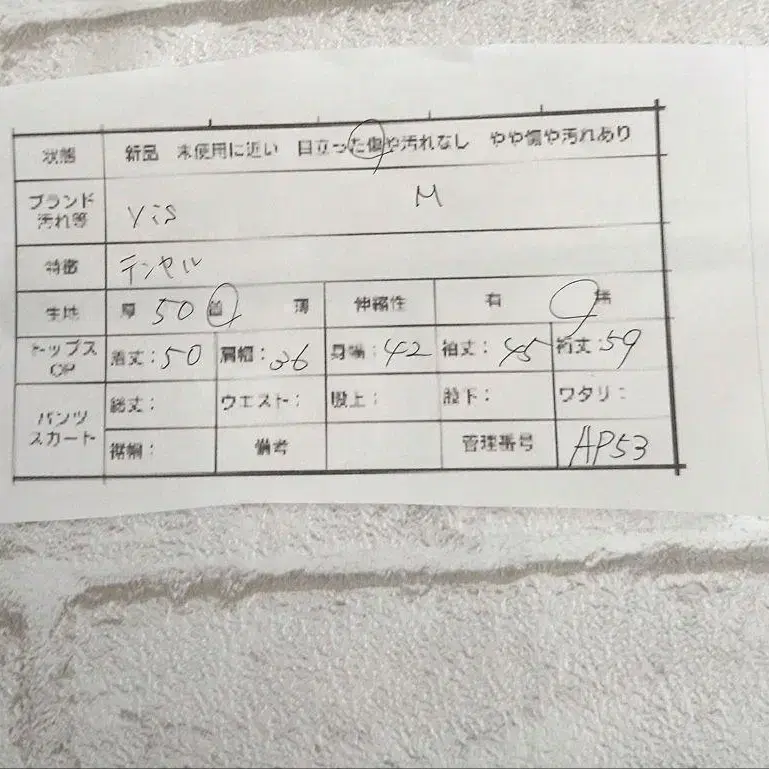 状態 新品 未使用に近い 目立った傷や汚れなし やや傷や汚れあり
ブランド 汚れ等 Vis M
特徴 テンセル
生地 厚 50 普 薄 伸縮性 有 無
トップス OP 着丈：50 肩幅：36 身幅：42 袖丈：45 裄丈：59
パンツ スカート 総丈： ウエスト： 股上： 股下： ワタリ：
裾幅： 備考 管理番号 AP53